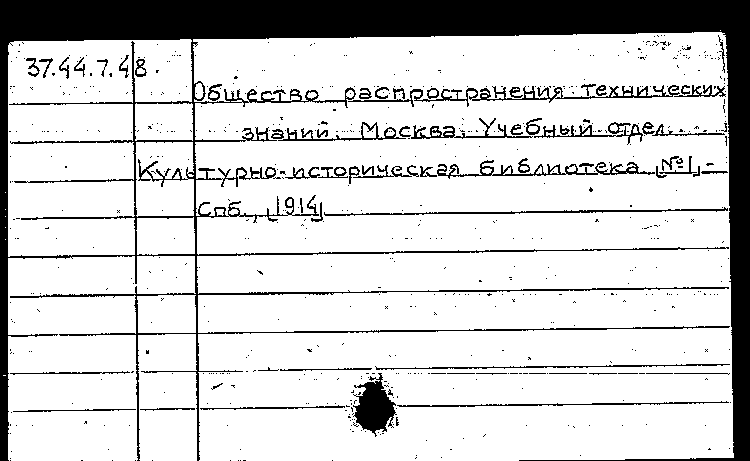 37.44.7.48.
Общество распространения технических
знаний. Москва. Учебный отдел.
Культурно-историческая библиотека [№1] -
Спб., [1914]